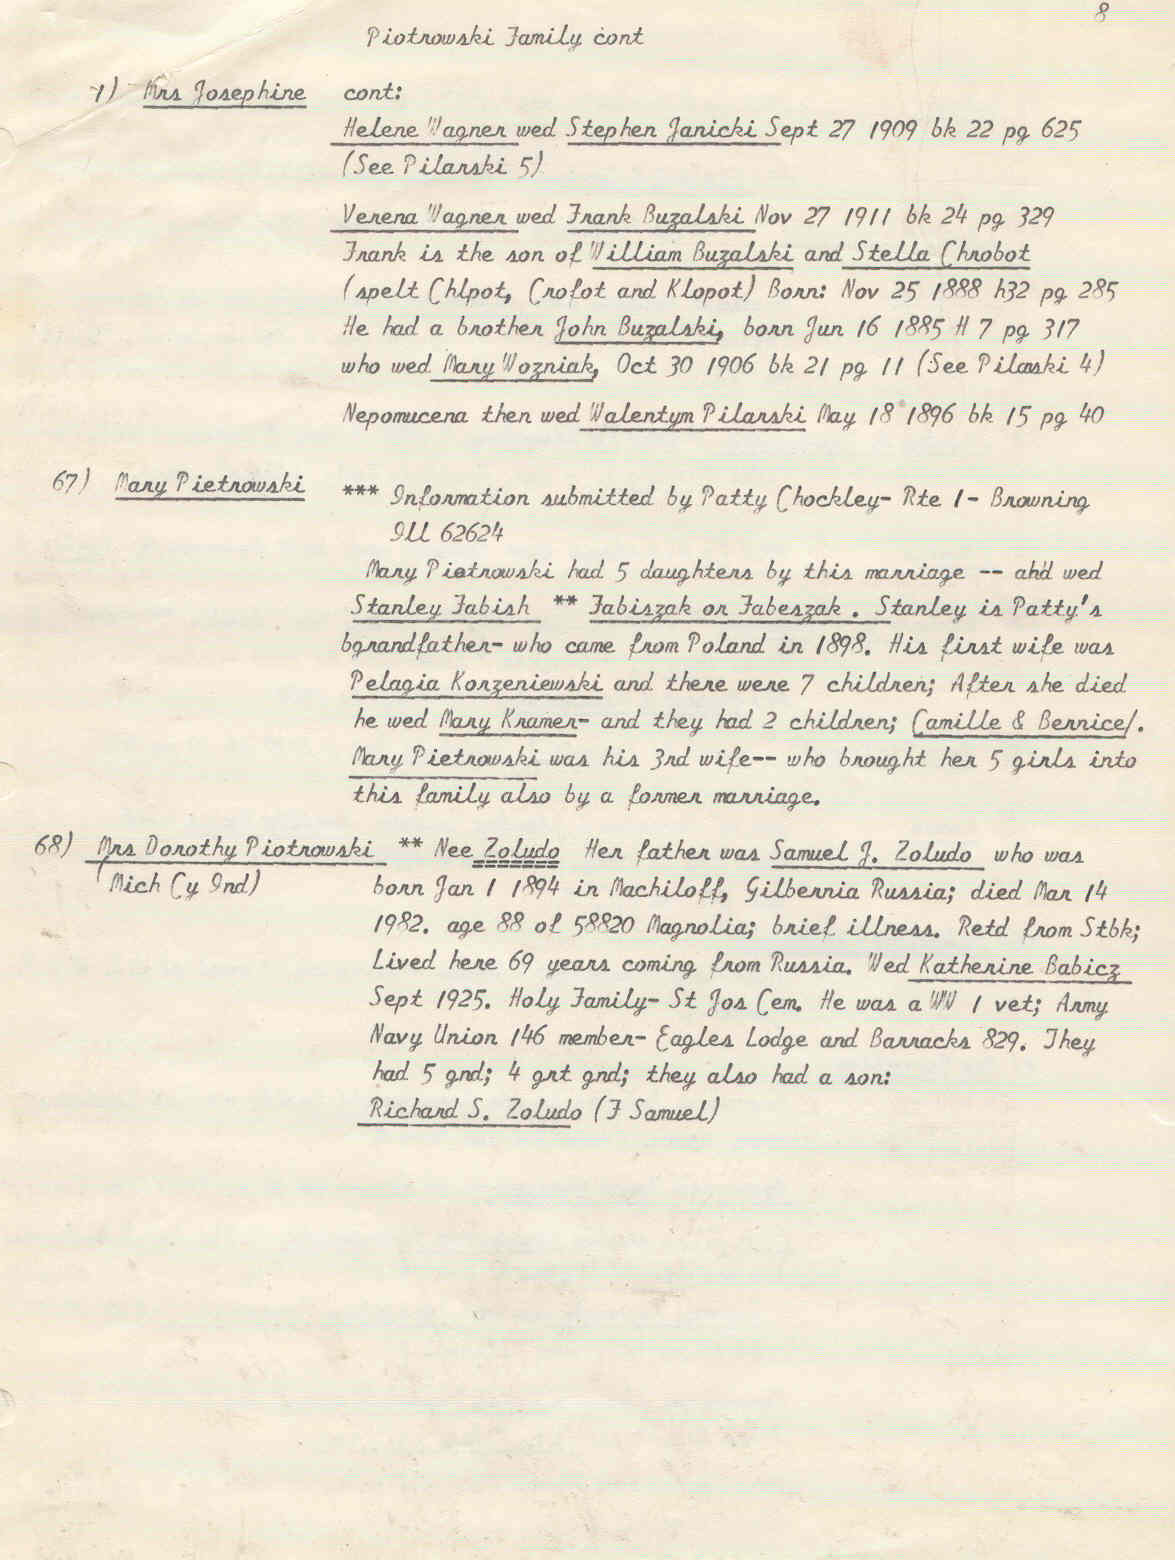 8
Piotrowski Family cont
1) Mrs Josephine cont:
Helene Wagner wed Stephen Janicki Sept 27 1909 bk 22 pg 625
(See Pilarski 5)
Verena Wagner wed Frank Buzalski Nov 27 1911 bk 24 pg 329
Frank is the son of William Buzalski and Stella Chrobot
(spelt Chlpot, Crofot and Klopot) Born: Nov 25 1888 h32 pg 285
He had a brother John Buzalski, born Jun 16 1885 H 7 pg 317
who wed Mary Wozniak, Oct 30 1906 bk 21 pg 11 (See Pilarski 4)
Nepomucena then wed Walentym Pilarski May 18 1896 bk 15 pg 40
67) Mary Pietrowski *** Information submitted by Patty Chockley- Rte 1- Browning
Ill 62624
Mary Piotrowski had 5 daughters by this marriage -- ahd wed
Stanley Fabish ** Fabiszak or Fabeszak. Stanley is Patty's
bgrandfather- who came from Poland in 1898. His first wife was
Pelagia Korzeniewski and there were 7 children; After she died
he wed Mary Kramer- and they had 2 children; Camille & Bernice/.
Mary Pietrowski was his 3rd wife-- who brought her 5 girls into
this family also by a former marriage.
68) Mrs Dorothy Piotrowski ** Nee Zoludo Her father was Samuel J. Zoludo who was
(Mich Cy Ind) born Jan 1 1894 in Machiloff, Gilbernia Russia; died Mar 14
1982. age 88 of 58820 Magnolia; brief illness. Retd from Stbk;
Lived here 69 years coming from Russia. Wed Katherine Babicz
Sept 1925. Holy Family- St Jos Cem. He was a WW 1 vet; Army
Navy Union 146 member- Eagles Lodge and Barracks 829. They
had 5 gnd; 4 grt gnd; they also had a son:
Richard S. Zoludo (F Samuel)